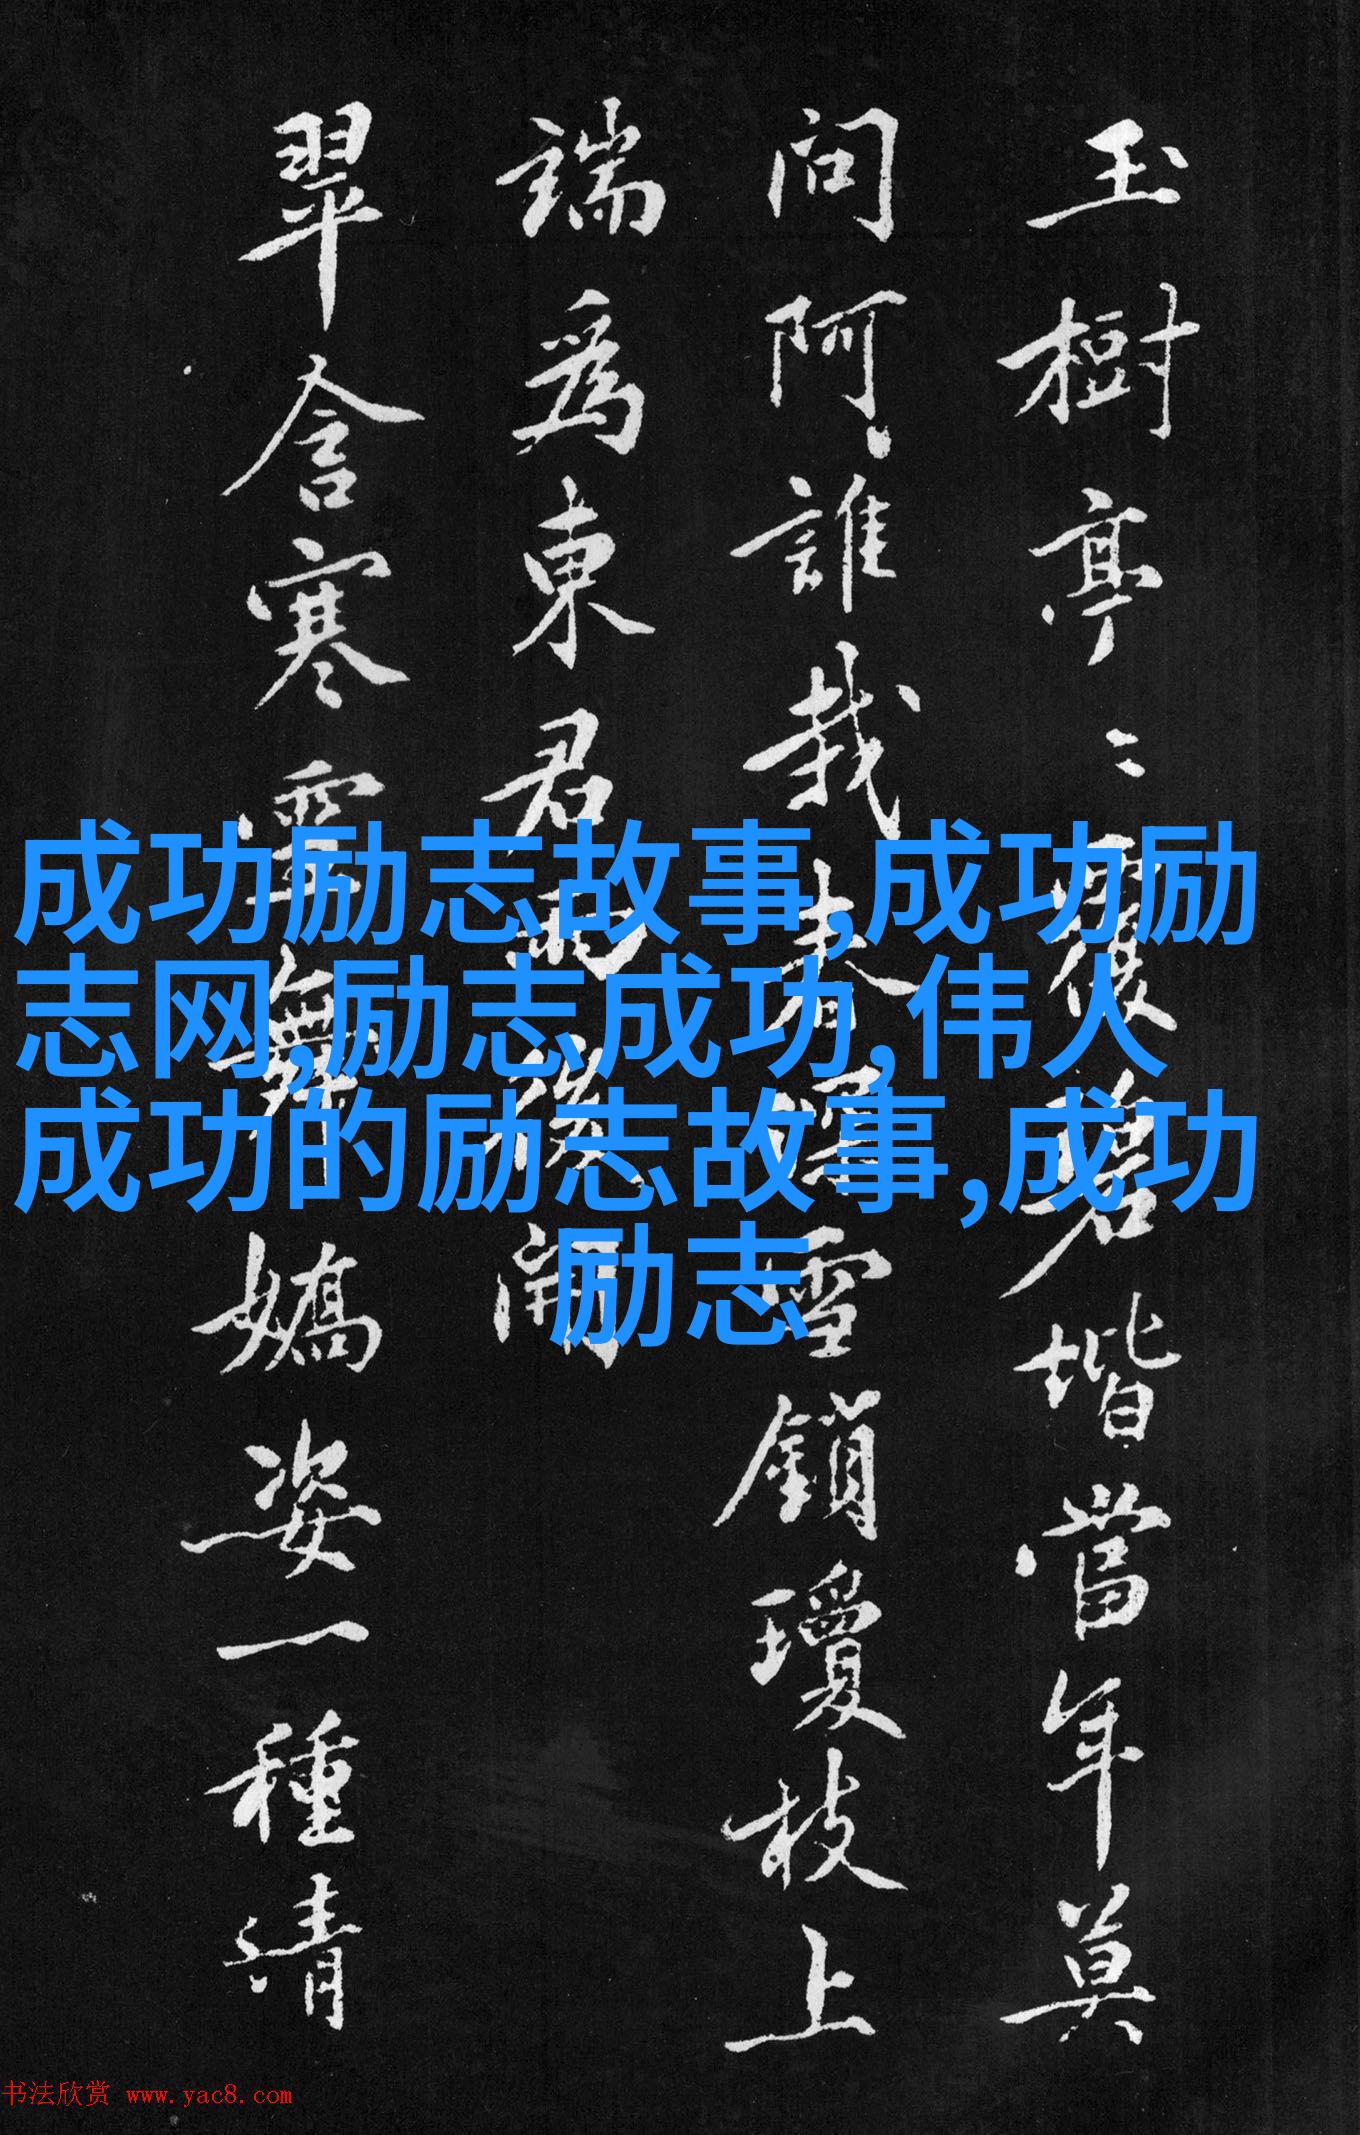 玉樹亭二二覆碧堦當年莫
問阿誰栽春曙雪鎖瓊枝上
端爲東君雨後開
翠含寒雪舞嬌姿一種清
成功励志故事,成功励
志网,励志成功,伟人
成功的励志故事,成功
励志
书法欣赏 www.yac8.com